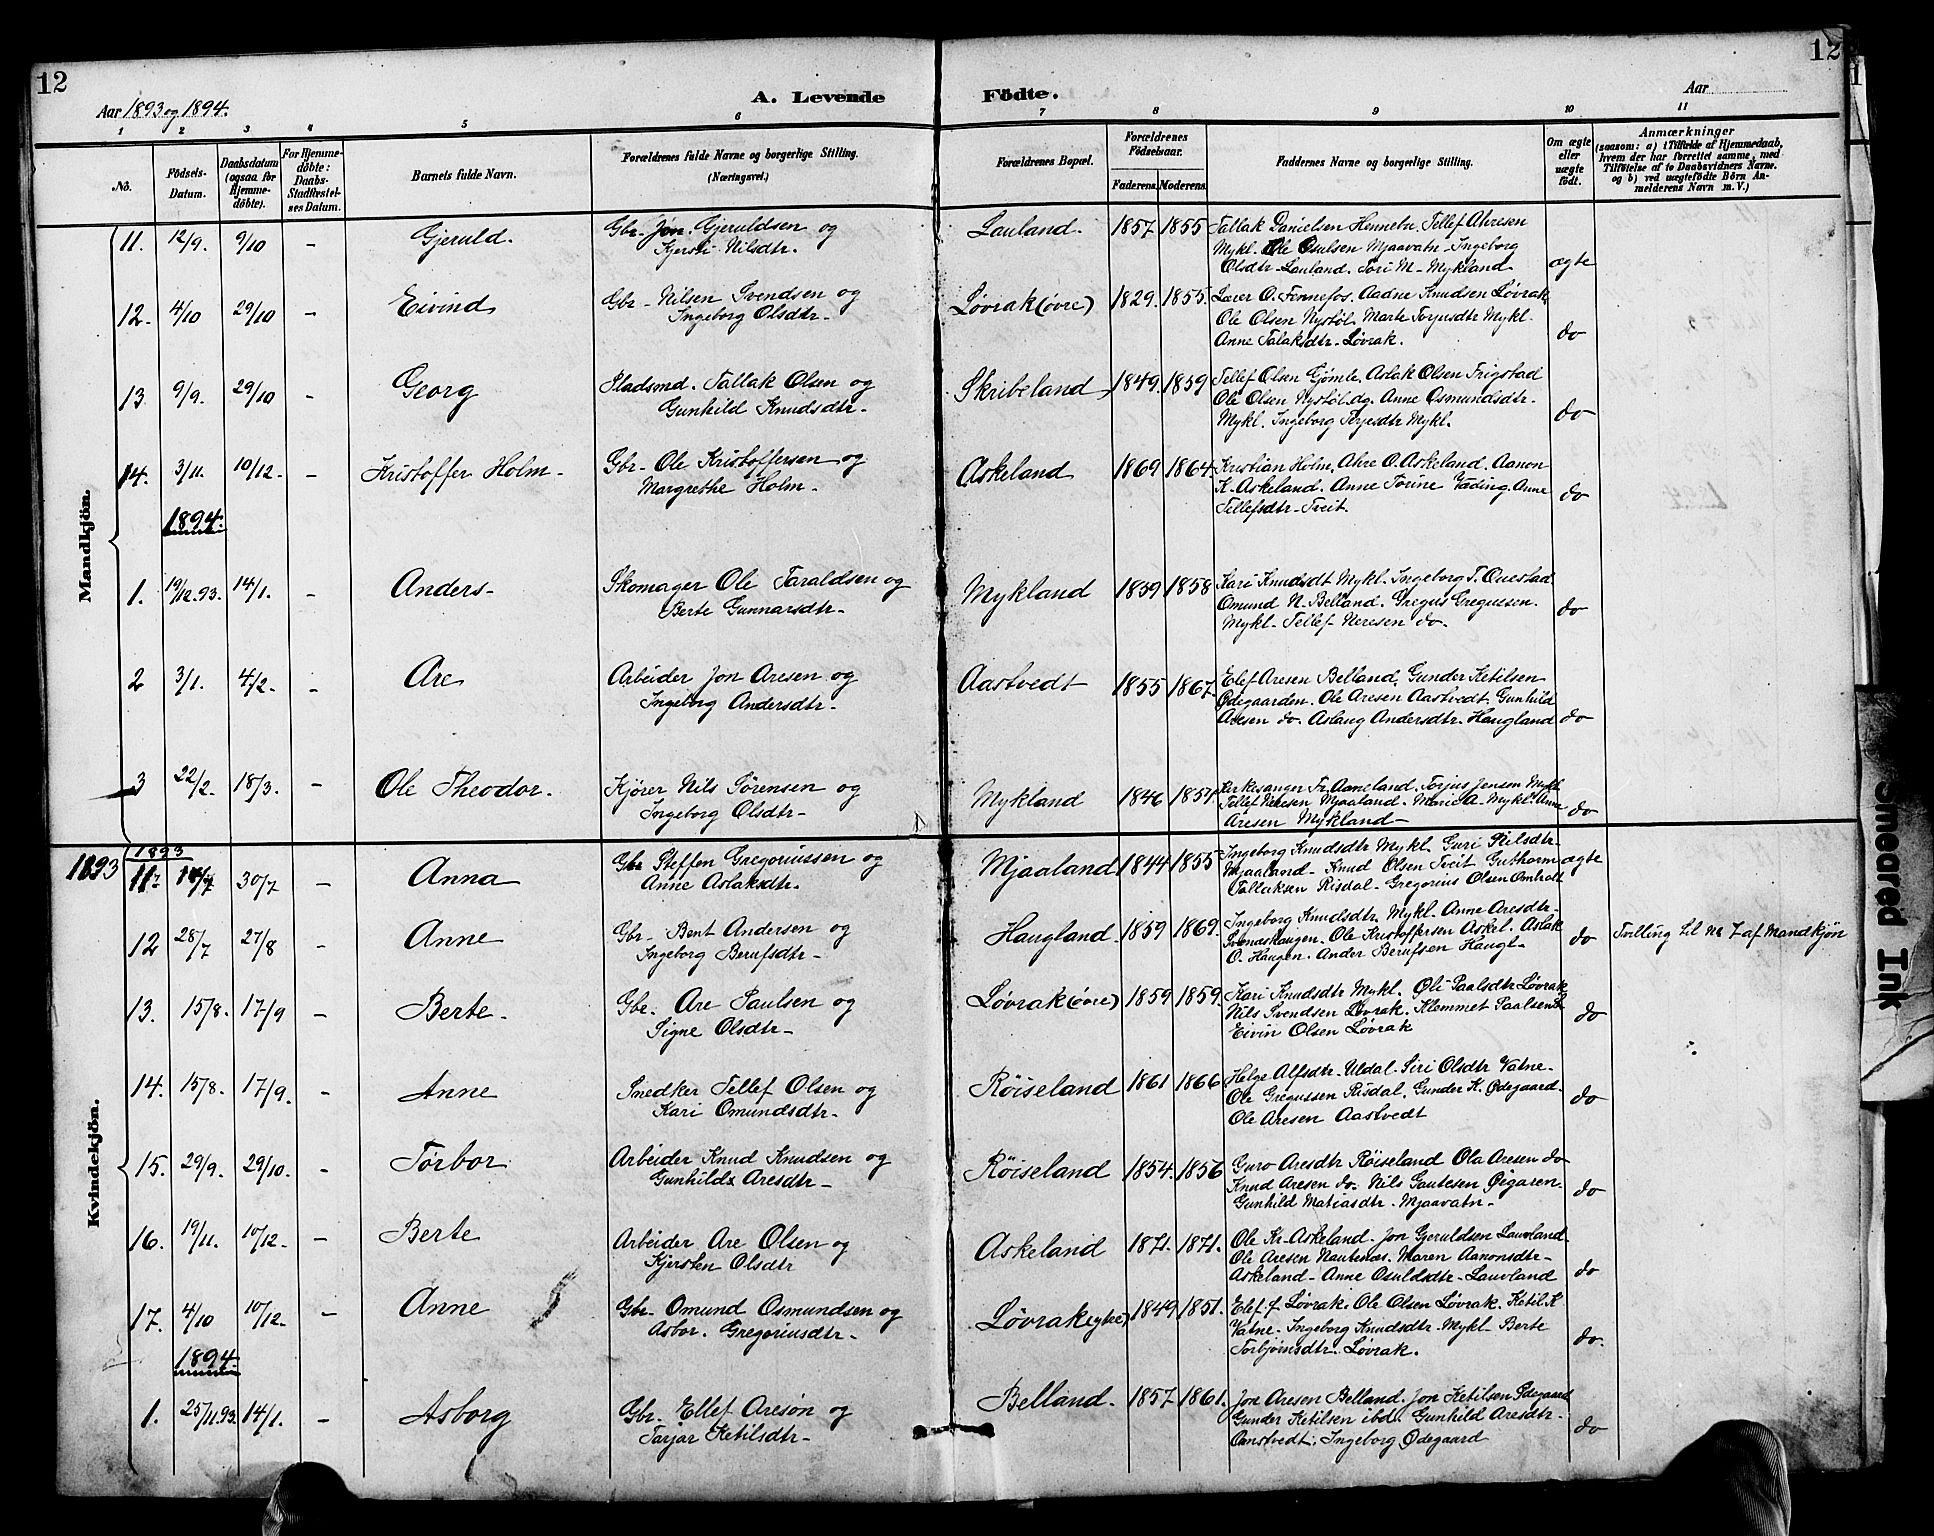 12
12
Aar 1893 og 1894.
A. Levende Födte.
Aar
1 2 3 4 5 6 7 8 9 10 11
No.
Födsels-Datum.
Daabsdatum (ogsaa for Hjemme-döbte).
For Hjemme-döbte: Daabs-Stadfæstel-ses Datum.
Barnets fulde Navn.
Forældrenes fulde Navne og borgerlige Stilling. (Næringsvei.)
Forældrenes Bopæl.
Forældrenes Födselsaar.
Faderens. Moderens.
Faddernes Navne og borgerlige Stilling.
Om ægte eller uægte födt.
Anmærkninger
(saasom: a) i Tilfælde af Hjemmedaab, hvem der har forrettet samme, med Tilföielse af to Daabsvidners Navne, og b) ved uægtefödte Börn An-melderens Navn m. V.)
Mandkjön.
11. 12/9. 9/10 - Gjeruld. Gbr. Jon Gjeruldsen og Lauland. 1857 1855 Tallak Danielsen Hennebu, Tellef Ahresen
Kjersti Nilsdtr. Mykl. Ole Osulsen Mjaavatn - Ingeborg
Olsdtr - Lauland. Tori M - Mykland. ægte
12. 4/10 29/10 - Eivind Gbr - Nilsen Svendsen og Løvrak (øvre) 1829. 1855. Lærer O. Fennefos. Aadne Knudsen Løvrak
Ingeborg Olsdtr - Ole Olsen Nystøl. Marte Terjesdtr Mykl.
Anne Talaksdtr - Løvrak. do
13. 9/9. 29/10 - Georg Pladsmd. Tallak Olsen og Skribeland 1849. 1859 Tellef Olsen Gjømle. Aslak Olsen Frigstad
Gunhild Knudsdtr. Ole Olsen Nystøl. og. Anne Osmundsdtr.
Mykl. Ingeborg Terjesdtr Mykl. do
14. 3/11. 10/12. - Kristoffer Holm - Gbr - Ole Kristoffersen og Askeland 1869 1864. Kristian Holm. Ahre O. Askeland. Aanon
Margrethe Holm - K. Askeland. Anne Torine Væding. Anne
Tellefsdtr - Tveit. do
1894.
1. 19/12.93. 14/1. - Anders - Skomager Ole Taraldsen og Mykland 1859 1858 Kari Knudsdt Mykl. Ingeborg T. Ouestad
Berte Gunnarsdtr - Omund N. Belland. Gregus Gregussen.
Mykl - Tellef Neresen do. do
2 3/1. 4/2. - Are Arbeider Jon Aresen og Aastvedt 1855 1867. Elef Aresen Belland, Gunder Ketilsen
Ingeborg Andersdtr. Ødegaarden. Ole Aresen Aastvedt. Gunhild
Aresen do. Aslaug Andersdtr. Haugland do
3 22/2. 18/3. - Ole Theodor. Kjører Nils Sørensen og Mykland 1846 1854. Kirkesanger Fr. Aaneland. Torjus Jensen Mykl.
Ingeborg Olsdtr - Tellef Neresen Mjaaland. Marie A - Mykl. Anne
Aresen Mykland - do
Kvindekjön.
1893 1893
11. 14/7 30/7 - Anna Gbr Steffen Gregoriussen og Mjaaland 1844 1855 Ingeborg Knudsdtr Mykl. Guri Nilsdtr.
Anne Aslaksdtr. Mjaaland - Knud Olsen Tveit Guthorm
Tallaksen Risdal - Gregorius Olsen Omholt ægte
12 28/7 27/8 - Anne Gbr. Bent Andersen og Haugland. 1859 1869. Ingeborg Knudsdtr. Mykl. Anne Aresdtr.
Ingeborg Berufsdtr - Svendshaugen. Ole Kristoffersen Askel. Aslak
O. Haugen. Ander Berufsen Haugl - do Tvilling til No 7 af Mandkjøn
13. 15/8. 17/9 - Berte. Gbr. Are Paulsen og Løvrak (øvre) 1859 1859. Kari Knudsdtr Mykl. Oli Paalsdtr Løvrak
Signe Olsdtr - Nils Svendsen Løvrak. Klemmet Paalsen L
Eivin Olsen Løvrak do
14. 15/8. 17/9. - Anne Snedker Tellef Olsen og Røiseland 1861 1866 Helge Alfsdtr. Uldal. Siri Olsdtr Vatne.
Kari Omundsdtr. Ole Gregussen Risdal. Gunder K. Ødegaard.
Ole Aresen Aastvedt do
15. 29/9. 29/10. - Torbor Arbeider Knud Knudsen og Røiseland 1854. 1856 Guro Aresdtr Røiseland Ola Aresen do
Gunhild Aresdtr - Knud Aresen do. Nils Sautesen Øigaren.
Gunhild Matiasdtr. Mjaavatn. do
16. 19/11. 10/12. - Berte Arbeider Are Olsen og Askeland 1871. 1871. Ole Kr. Askeland. Jon Gjeruldsen Lauvland
Kjersten Olsdtr Ole Aresen Nautenes. Maren Aanonsdtr.
Askeland - Anne Osuldsdtr. Lauvland do
17. 4/10 10/12. - Anne Gbr. Omund Osmundsen og Løvrak (ytre) 1849 1851. Elef J. Løvrak. Ole Olsen Løvrak. Ketil K
Asbor. Gregoriusdtr. Vatne. Ingeborg Knudsdtr. Mykl. Berte
Torbjørnsdtr. Løvrak. do.
1894.
1. 25/11.93. 14/1. - Asborg Gbr. Ellef Aresøn og Belland. 1857 1861. Jon Aresen Belland. Jon Ketilsen Ødegaard
Tarjar Ketilsdtr. Gunder Ketilsen ibd. Gunhild Aresdtr.
Omstvedt. Ingeborg Ødegaard do
Smeared Ink